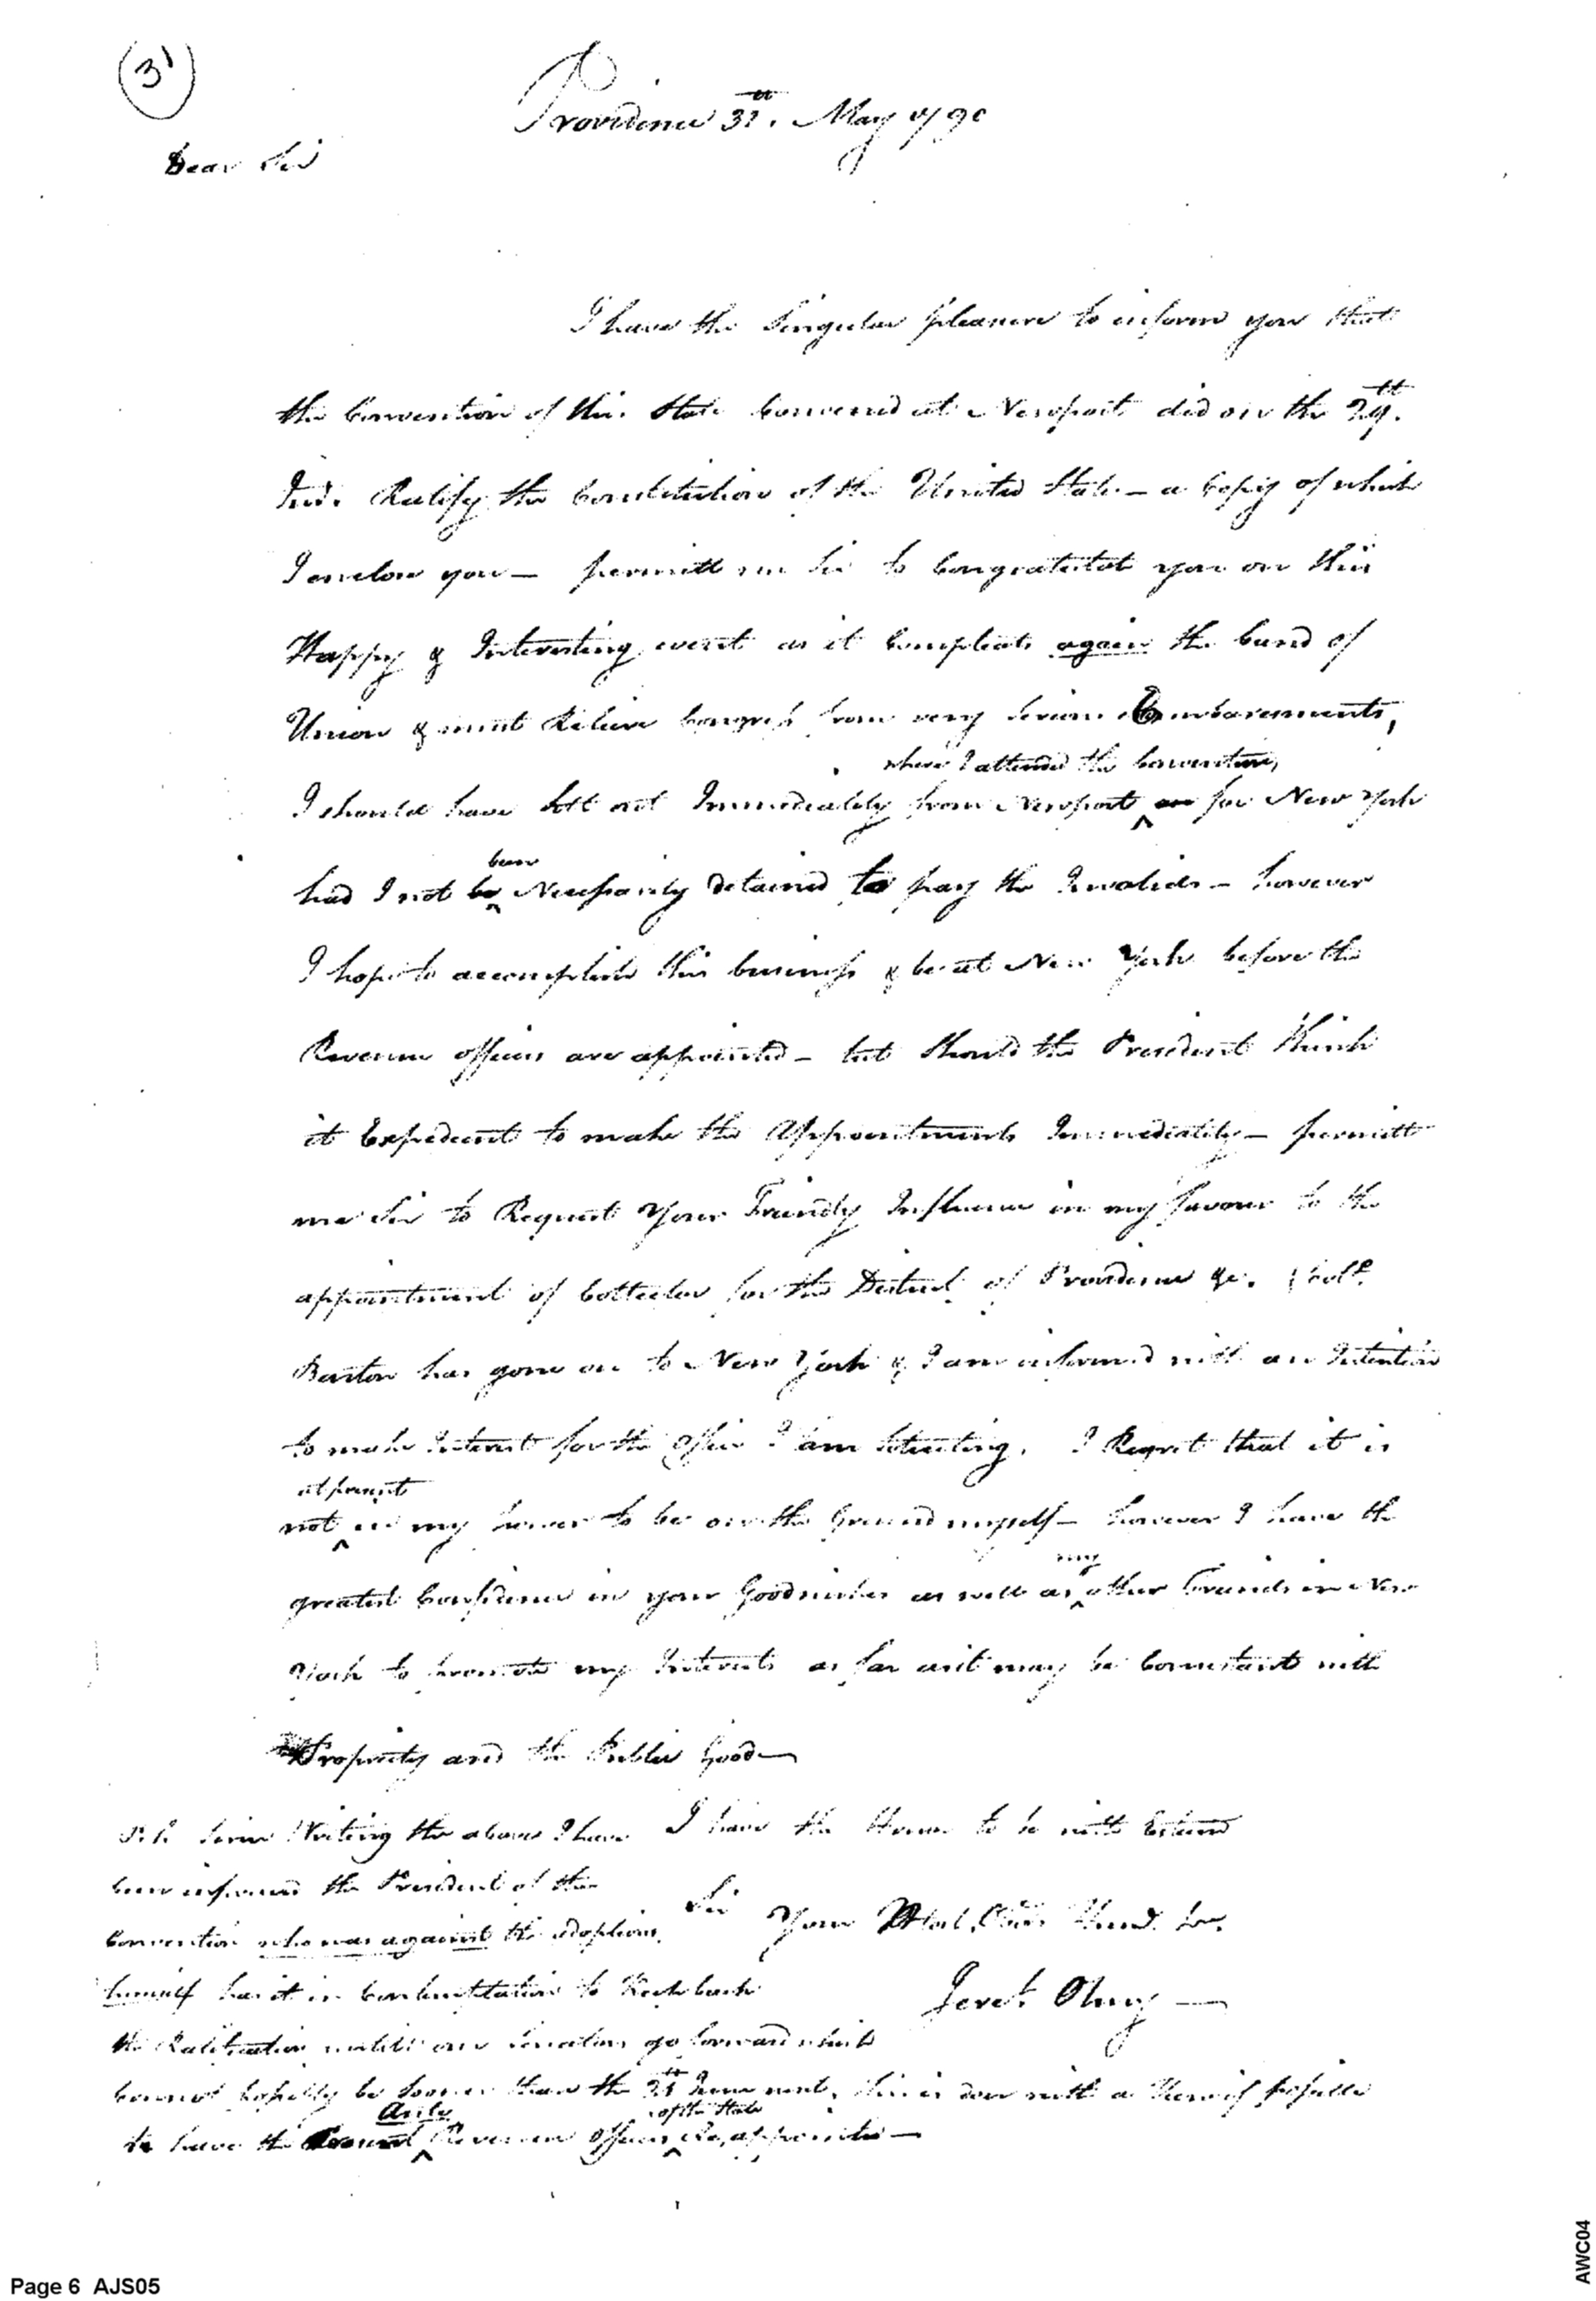 (31)
Providence 31st. May 1790
Dear Sir
I have the Singular pleasure to inform you that
the Convention of this State Convened at Newport did on the 29th.
Inst. Ratify the Constitution of the United States — a Copy of which
I enclose you — permitt me Sir to Congratulat you on this
Happy & Interesting event as it Compleats again the band of
Union & must Relieve Congress from very serious Embarasments,
where I attended the Convention,
I should have sett out Immediately from Newport for New York
been
had I not be Necessarily detained to pay the Invalids — however
I hope to accomplish this business & be at New York before the
Revenue officers are appointed — but should the President think
it Expedient to make the Appointments Immediately — permitt
me Sir to Request Your Friendly Influence in my favour to the
appointment of Collector for the District of Providence &c.
Barton has gone on to New York & I am informed with an Intention
to make Interest for the Office I am Soliciting. I Regret that it is
at present
not in my power to be on the Ground myself — however I have the
my
greatest Confidence in your Good wishes as well as other Friends in New
York to promote my Interests as far as it may be Consistant with
Propriety and the Public Good —
I have the Honor to be with Esteem
Sir Your Most. Obdt. Humb. Ser.
Jereh. Olney —
P.S. Since Writing the above I have
been informed the President of the
Convention who was against the adoption
himself has it in Contemplation to Keep back
the Ratification untill our Senators go forward which
Cannot possibly be sooner than the June next, this is done with a View if possible
of the State
to have the Revenue officers Re,appointed —
Page 6 AJS05
AWC04